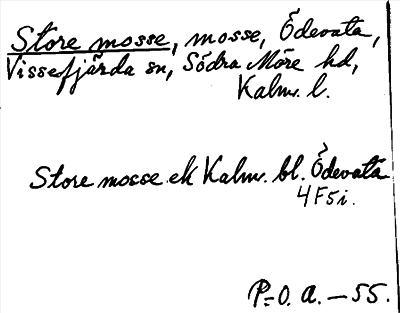 Store mosse, mosse, Ödevata,
Vissefjärda sn, Södra Möre hd,
Kalm. l.
Store mosse ek Kalm. bl. Ödevata
4F5i.
P-O. A. - 55.